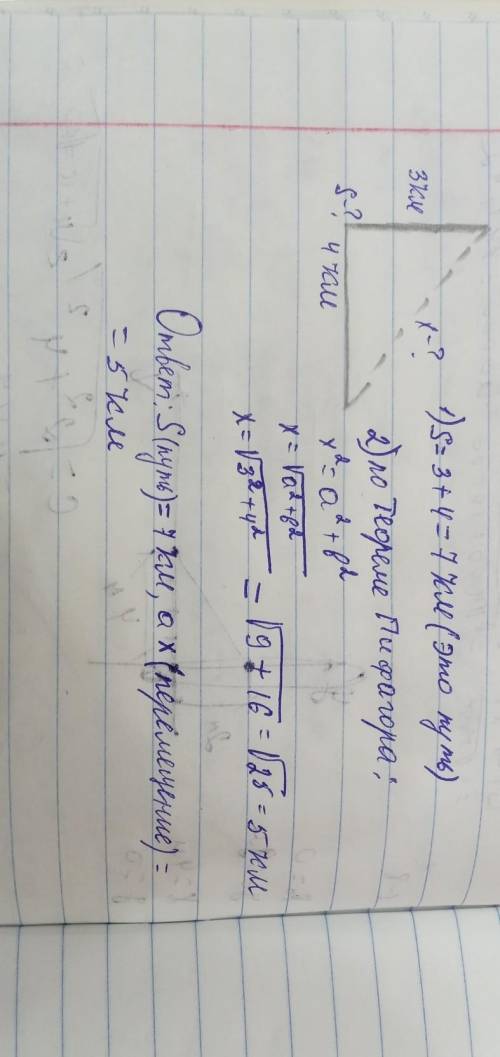 3 км
S-?
4 км
x-?
1) S = 3 + 4 = 7 км (это путь)
2) по теореме Пифагора:
x² = a² + b²
x = √a² + b²
x = √3² + 4² = √9 + 16 = √25 = 5 км
Ответ: S (путь) = 7 км, а x (перемещение) =
= 5 км